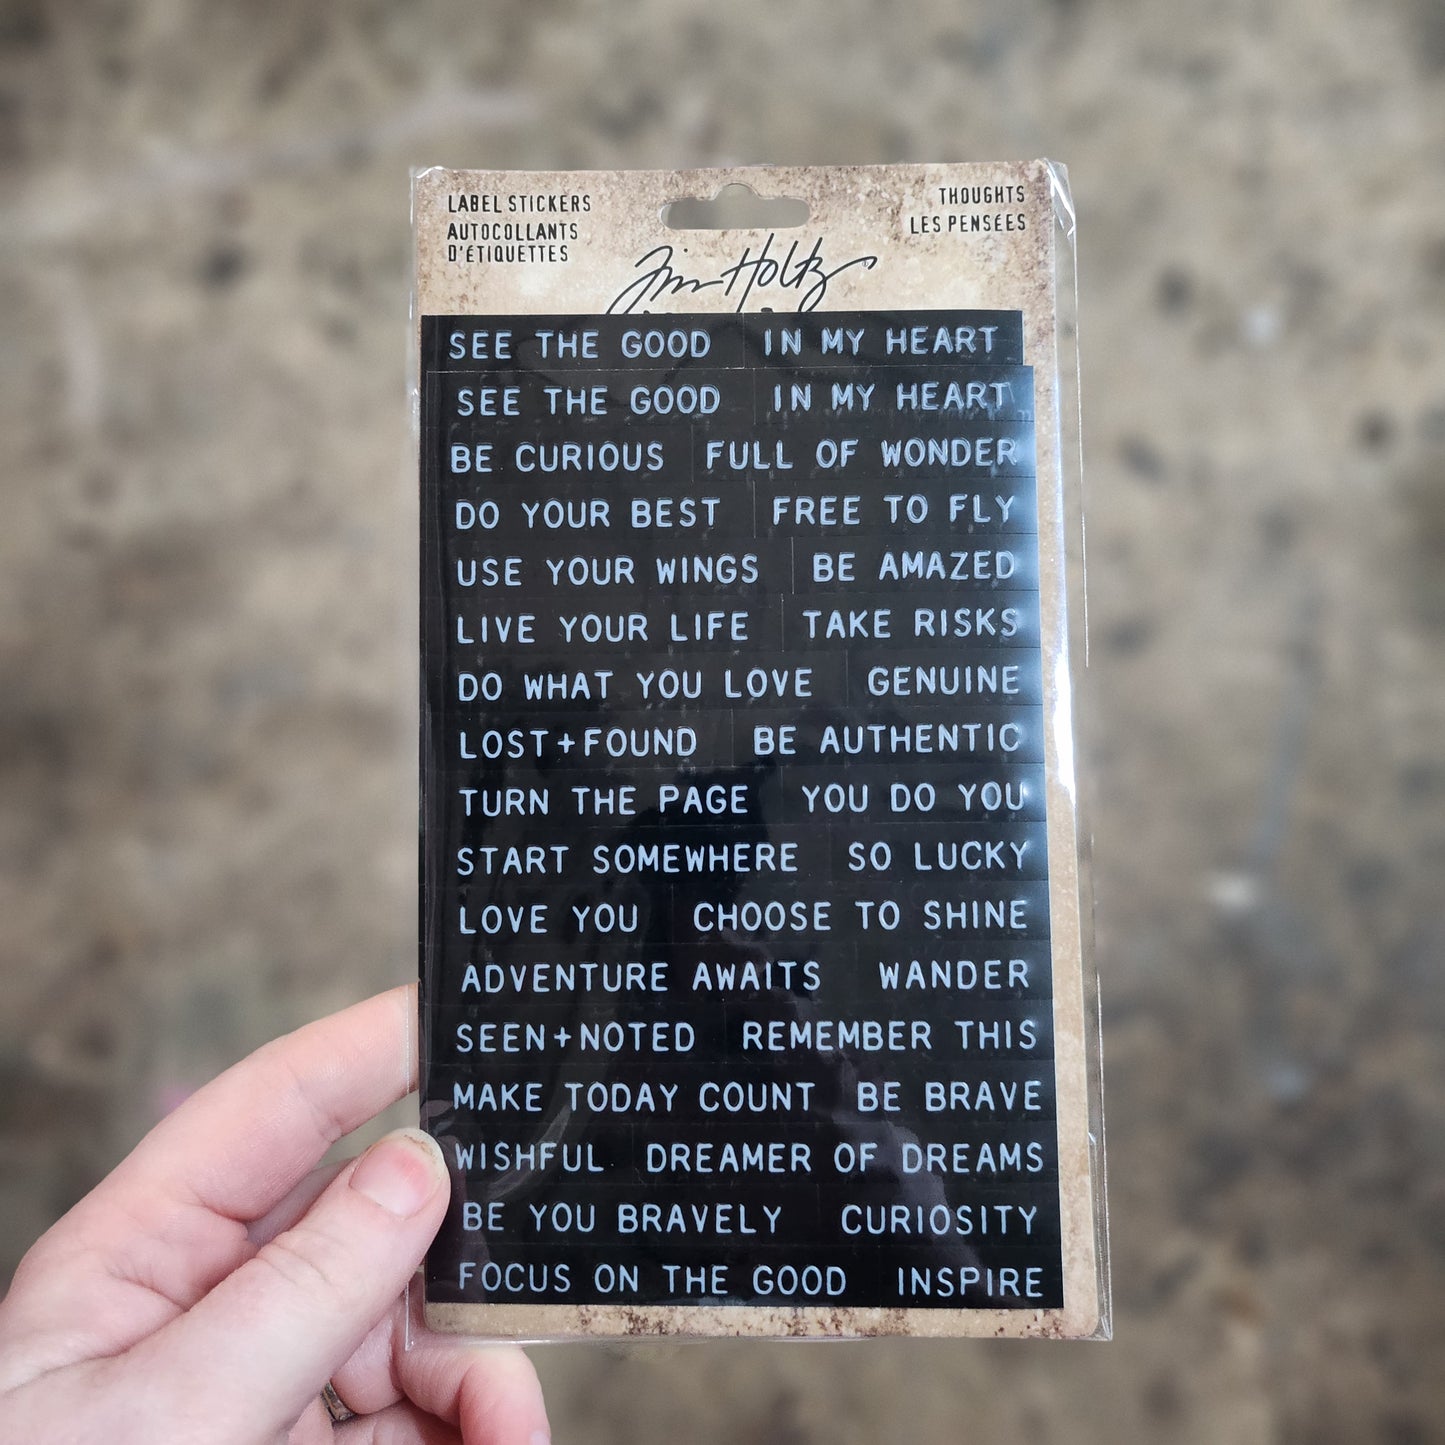 LABEL STICKERS
AUTOCOLLANTS
D'ÉTIQUETTES
THOUGHTS
LES PENSÉES
Tim Holtz
SEE THE GOOD IN MY HEART
SEE THE GOOD IN MY HEART
BE CURIOUS FULL OF WONDER
DO YOUR BEST FREE TO FLY
USE YOUR WINGS BE AMAZED
LIVE YOUR LIFE TAKE RISKS
DO WHAT YOU LOVE GENUINE
LOST+FOUND BE AUTHENTIC
TURN THE PAGE YOU DO YOU
START SOMEWHERE SO LUCKY
LOVE YOU CHOOSE TO SHINE
ADVENTURE AWAITS WANDER
SEEN+NOTED REMEMBER THIS
MAKE TODAY COUNT BE BRAVE
WISHFUL DREAMER OF DREAMS
BE YOU BRAVELY CURIOSITY
FOCUS ON THE GOOD INSPIRE